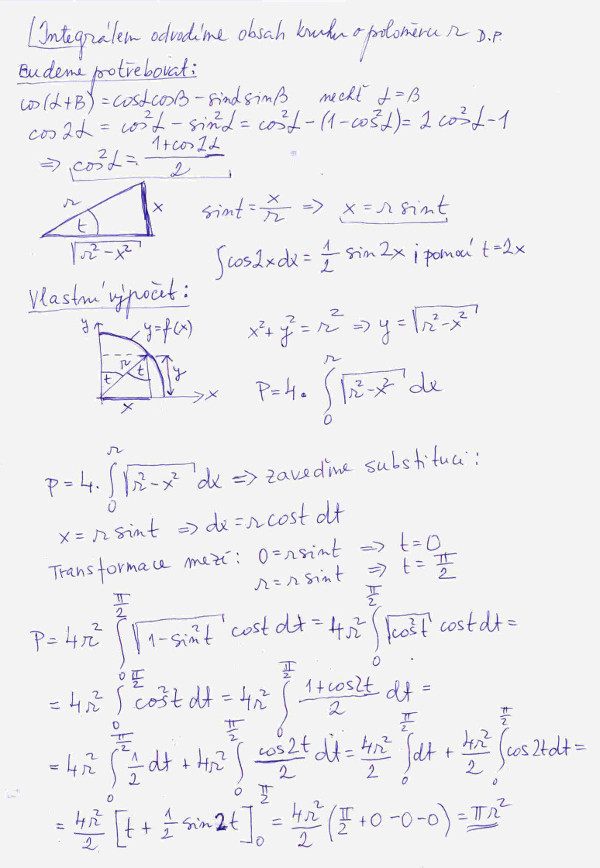 Integrálem odvodíme obsah kruhu o poloměru r D.P.
Budeme potřebovat:
cos(α+β) = cosα cosβ - sinα sinβ nechť α = β
cos 2α = cos²α - sin²α = cos²α - (1 - cos²α) = 2 cos²α - 1
⇒ cos²α = (1 + cos 2α)/2
r x t √(r² - x²)
sin t = x/r ⇒ x = r sin t
∫ cos 2x dx = 1/2 sin 2x i pomocí t = 2x
Vlastní výpočet:
y y = f(x) r t t y x x
x² + y² = r² ⇒ y = √(r² - x²)
P = 4 · ∫₀^r √(r² - x²) dx
P = 4 · ∫₀^r √(r² - x²) dx ⇒ zavedíme substituci:
x = r sin t ⇒ dx = r cos t dt
Transformace mezí: 0 = r sin t ⇒ t = 0
r = r sin t ⇒ t = π/2
P = 4r² ∫₀^(π/2) √(1 - sin²t) cos t dt = 4r² ∫₀^(π/2) √(cos²t) cos t dt =
= 4r² ∫₀^(π/2) cos²t dt = 4r² ∫₀^(π/2) (1 + cos 2t)/2 dt =
= 4r² ∫₀^(π/2) 1/2 dt + 4r² ∫₀^(π/2) (cos 2t)/2 dt = 4r²/2 ∫₀^(π/2) dt + 4r²/2 ∫₀^(π/2) cos 2t dt =
= 4r²/2 [t + 1/2 sin 2t]₀^(π/2) = 4r²/2 (π/2 + 0 - 0 - 0) = πr²